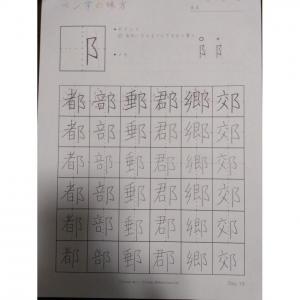 ペン字の味方
阝
都 部 郵 郡 郷 郊
都 部 郵 郡 郷 郊
都 部 郵 郡 郷 郊
都 部 郵 郡 郷 郊
都 部 郵 郡 郷 郊
都 部 郵 郡 郷 郊